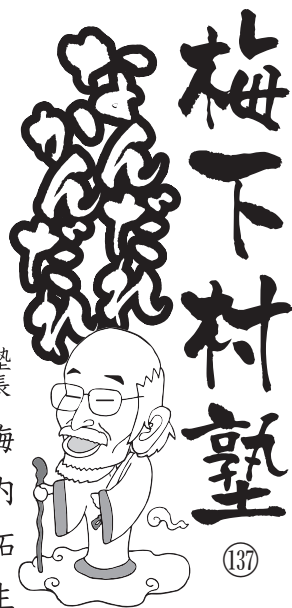 梅下村塾
137
なんだれ
かんだれ
塾長 梅内拓生